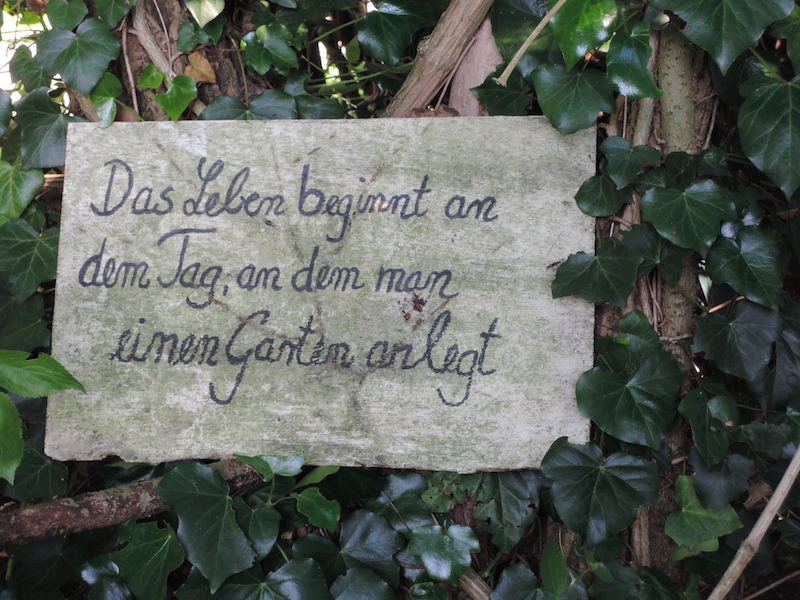 Das Leben beginnt an
dem Tag, an dem man
einen Garten anlegt